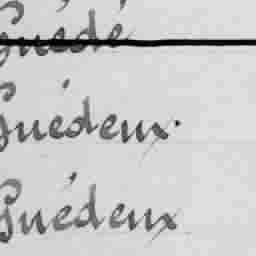 Guédé
Guédeux.
Guédeux